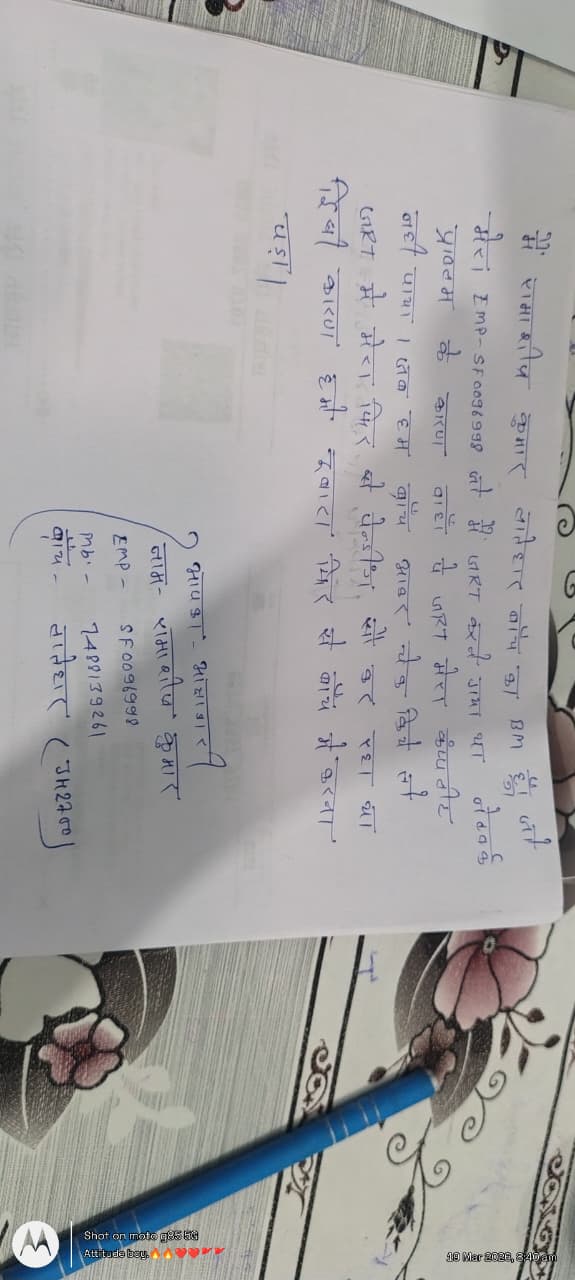 मैं रामाशीष कुमार लातेहार ब्रांच का BM हूँ। जो
मेरा EMP-SF0096998 जो मैं जस्ट करने गया था नेटवर्क
प्राबलम के कारण वहाँ पे जस्ट मेरा कंप्लीट
नहीं पाया। जब हम ब्रांच आकर चेक किये तो
जस्ट में मेरा फिर से पेन्डींग सो कर रहा था
इसी कारण हमें दूबारा फिर से ब्रांच में करना
पड़ा।
आपका
नाम- रामाशीष कुमार
EMP- SF0096998
Mb.- 7488139261
ब्रांच- लातेहार (JH2700)
Shot on moto g85 5G
Attitude boy🔥🔥❤️❤️🚩🚩
19 Mar 2026, 8:40 am